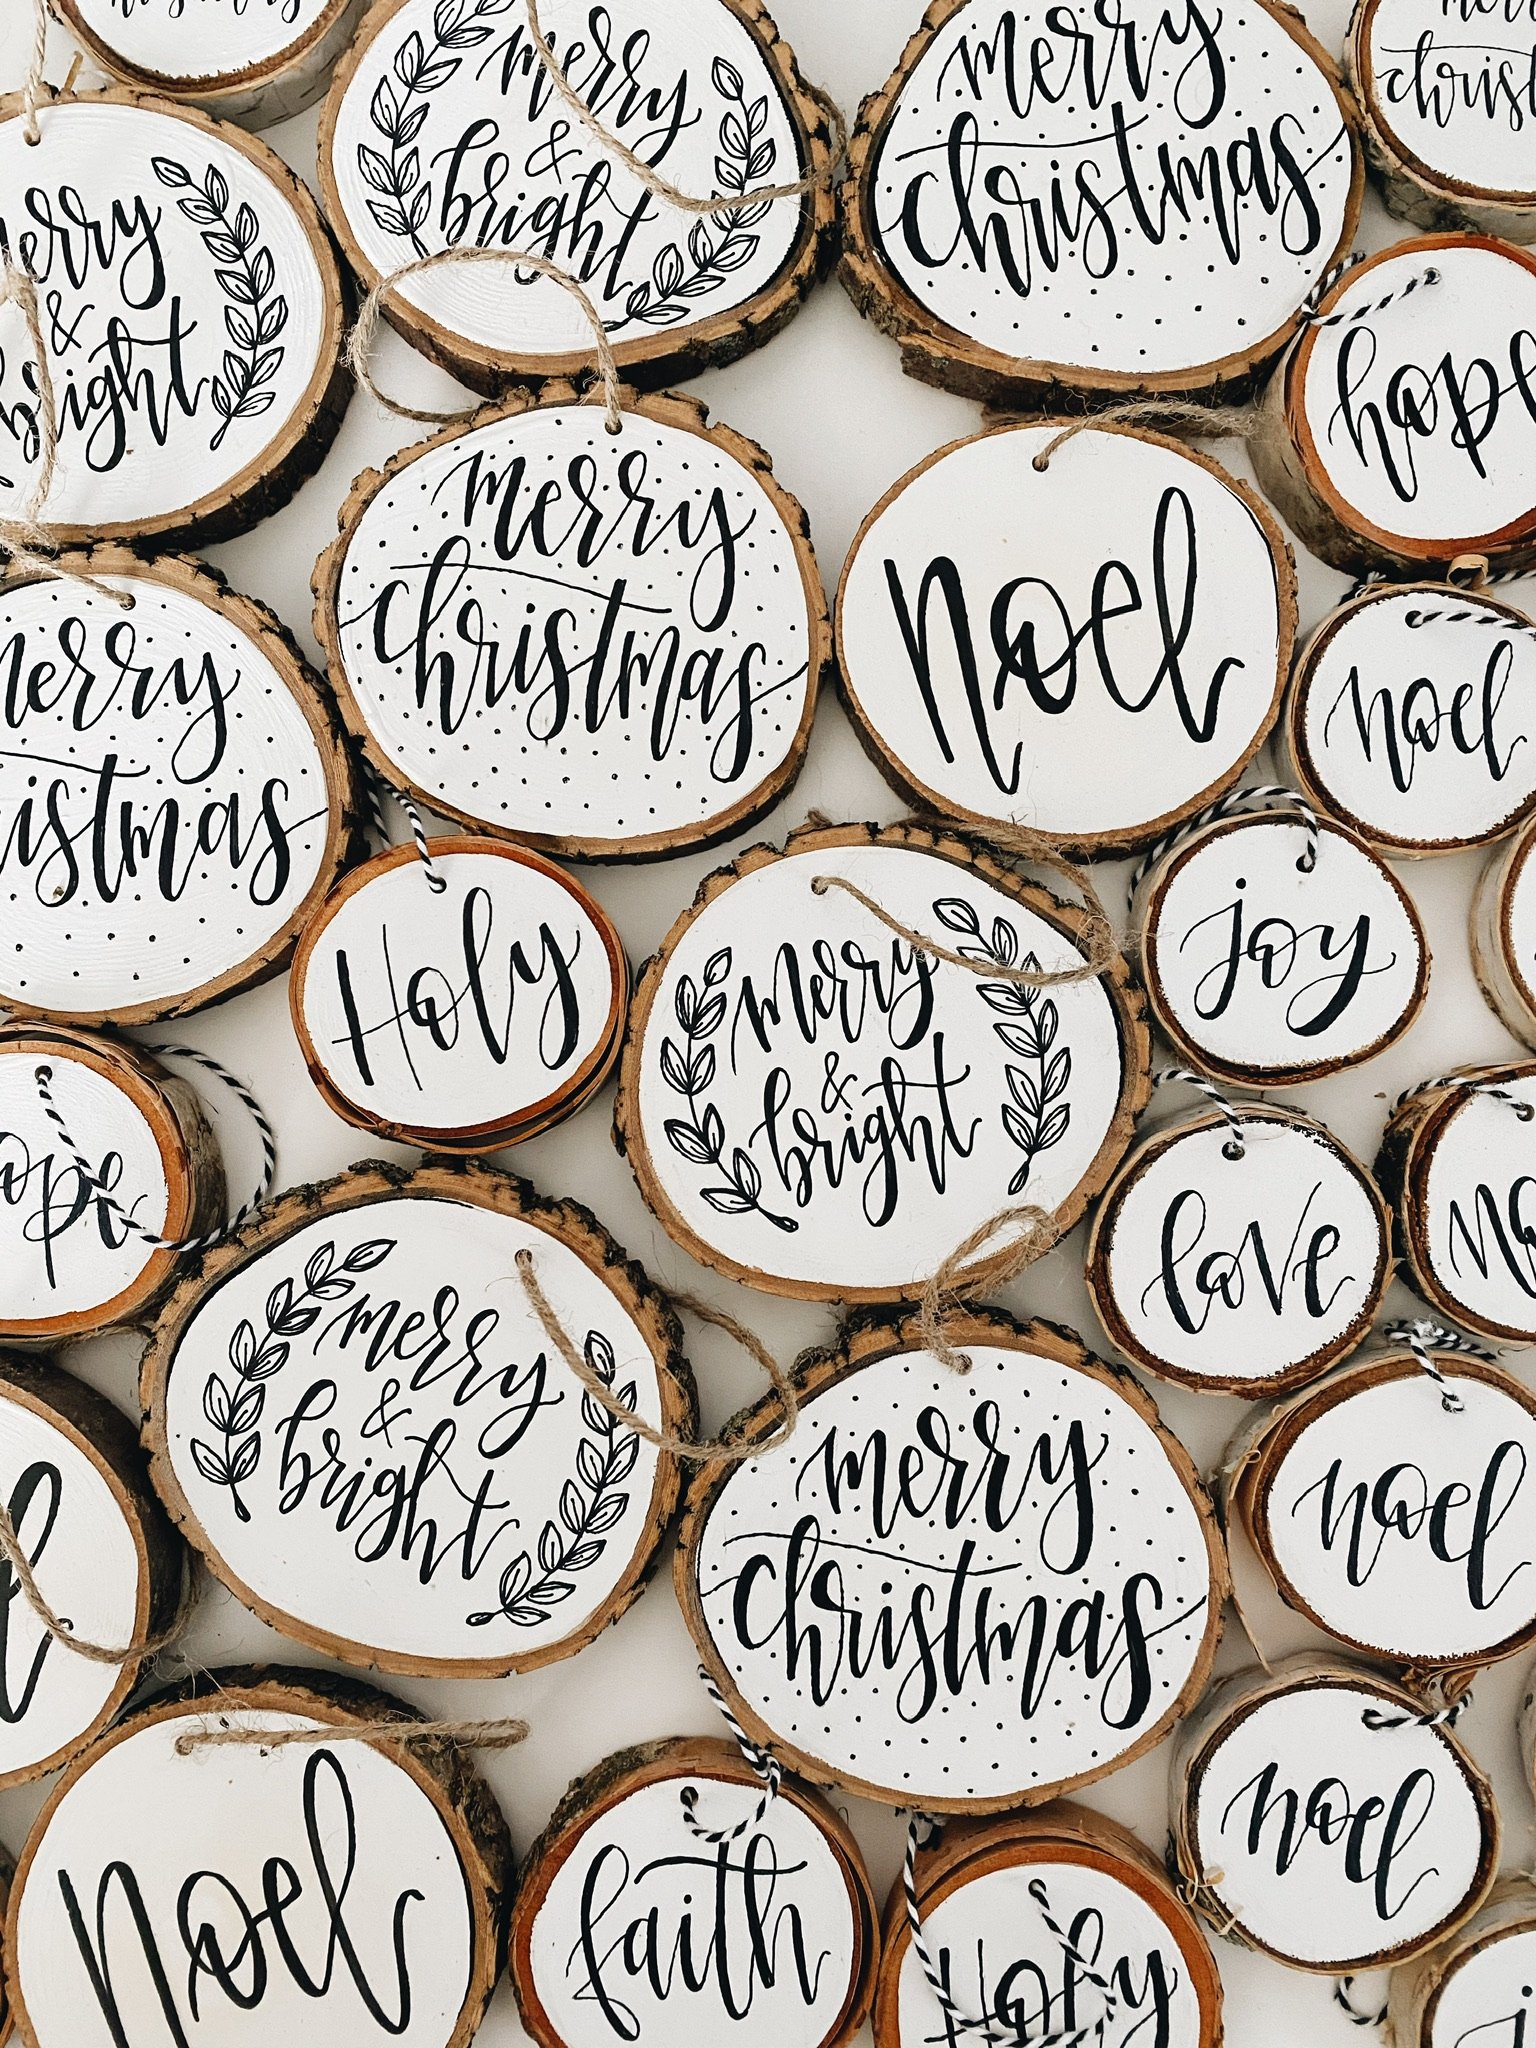 merry
&
bright
merry
christmas
merry
christ
merry
&
bright
hope
merry
christmas
noel
noel
merry
christmas
Holy
merry
&
bright
joy
hope
love
merry
&
bright
merry
christmas
noel
noel
noel
faith
Holy